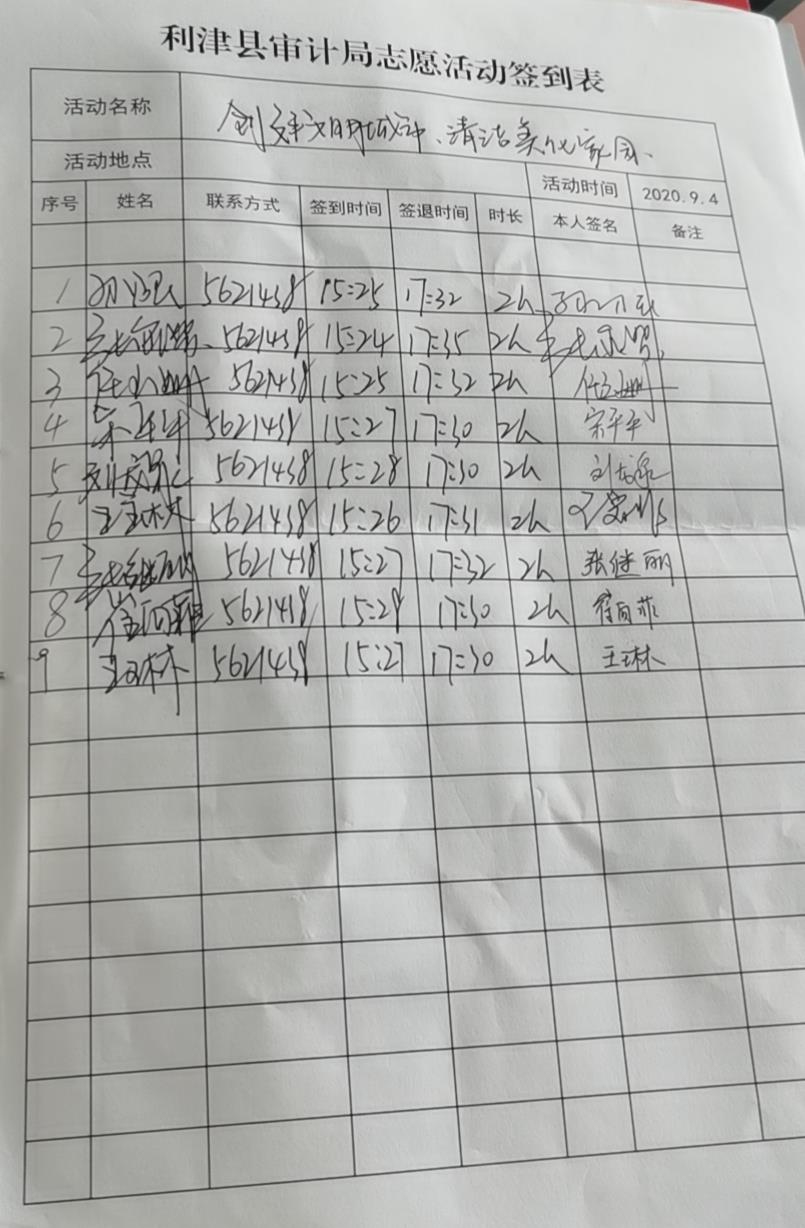 利津县审计局志愿活动签到表
活动名称 清洁美化家园
活动地点 活动时间 2020.9.4
序号 姓名 联系方式 签到时间 签退时间 时长 本人签名 备注
1 5621438 15:25 17:32 2h
2 5621438 15:24 17:35 2h
3 5621438 15:25 17:32 2h
4 宋平平 5621438 15:27 17:30 2h 宋平平
5 5621438 15:28 17:30 2h
6 5621438 15:26 17:31 2h
7 张继丽 5621438 15:27 17:32 2h 张继丽
8 5621438 15:29 17:30 2h
9 王琳 5621438 15:27 17:30 2h 王琳